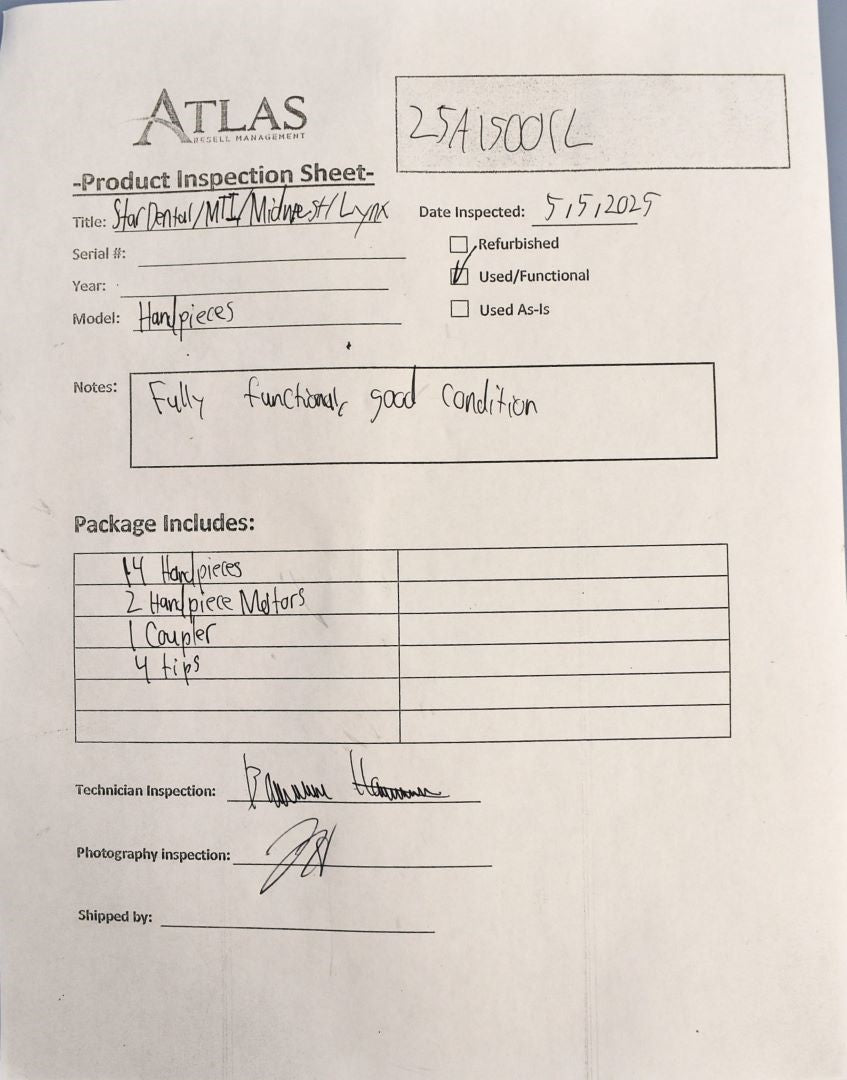 ATLAS
RESELL MANAGEMENT
25A1500CL
-Product Inspection Sheet-
Title: StarDental/MTI/Midwest/Lynx
Date Inspected: 5/5/2025
Serial #:
Refurbished
Year:
Used/Functional
Model: Handpieces
Used As-Is
Notes: Fully functional, good condition
Package Includes:
14 Handpieces
2 Handpiece Motors
1 Coupler
4 tips
Technician Inspection:
Photography inspection:
Shipped by: